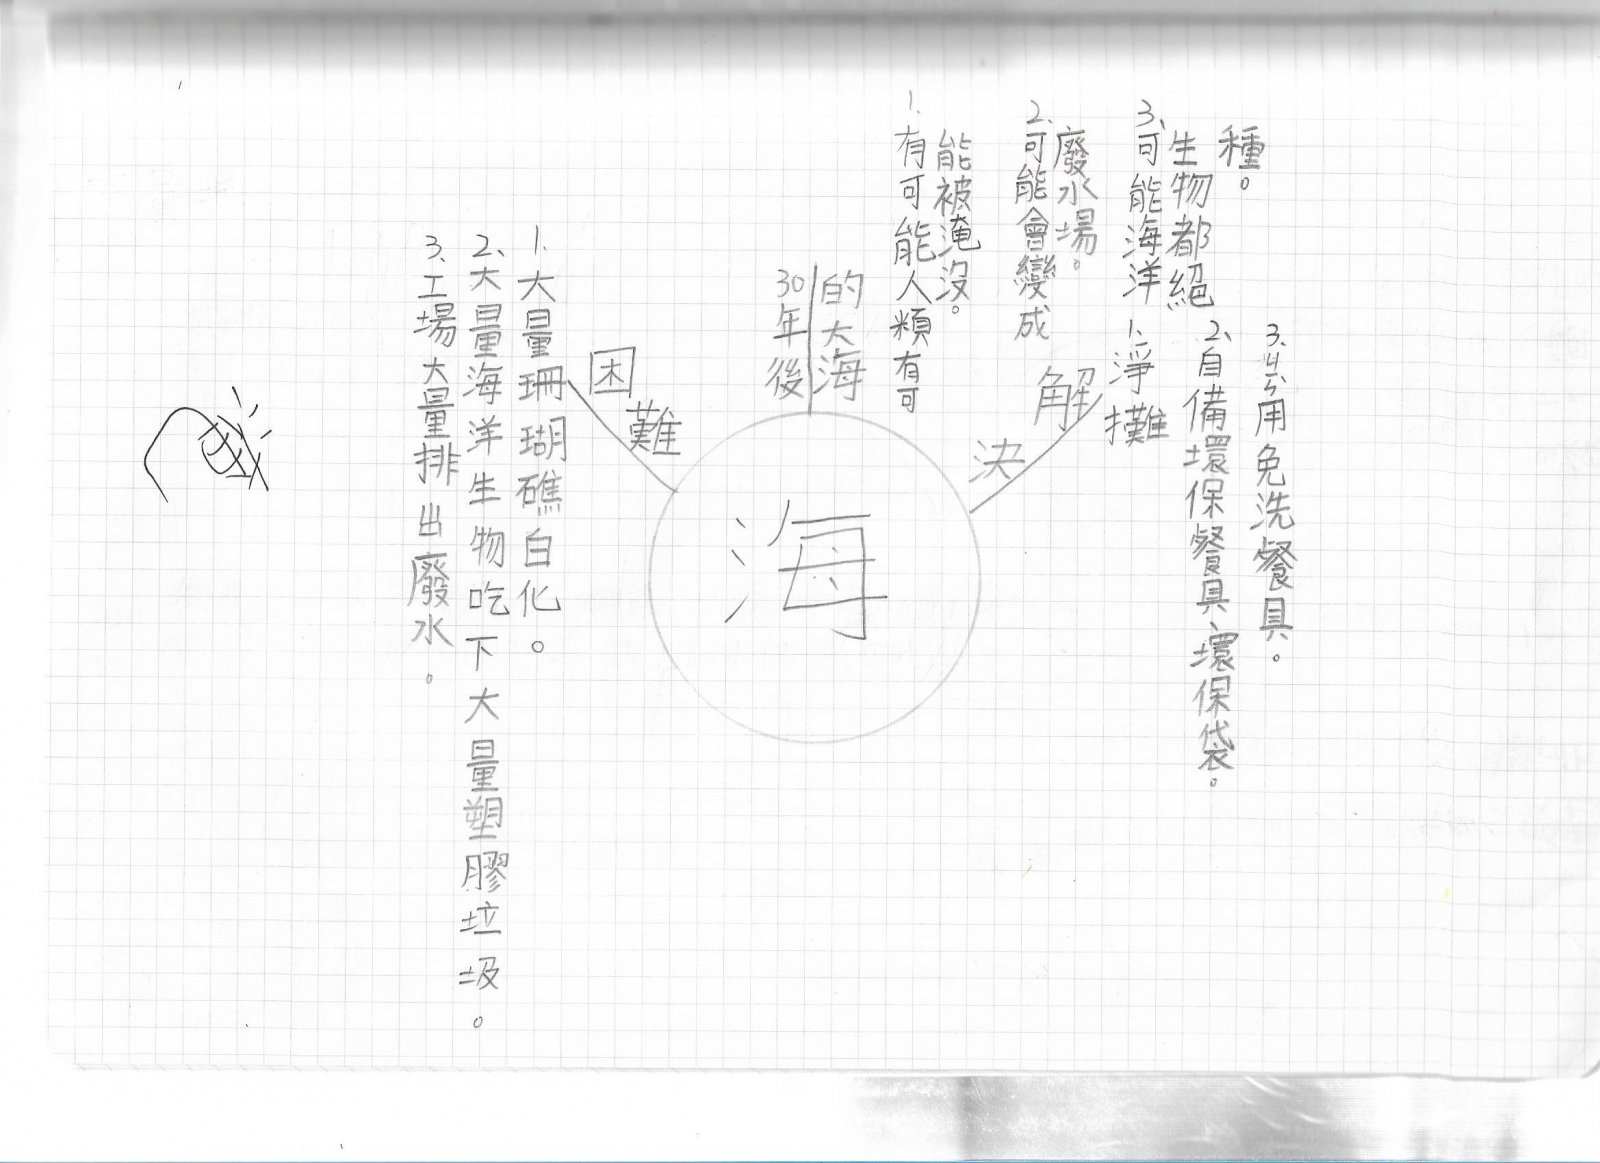 海
困難
1.大量珊瑚礁白化。
2、大量海洋生物吃下大量塑膠垃圾。
3、工場大量排出廢水。
30年後
的大海
1.有可能人類有可
能被淹沒。
2.可能會變成
廢水場。
3、可能海洋
生物都絕
種。
解決
1、淨攤
2、自備環保餐具、環保袋。
3、少用免洗餐具。